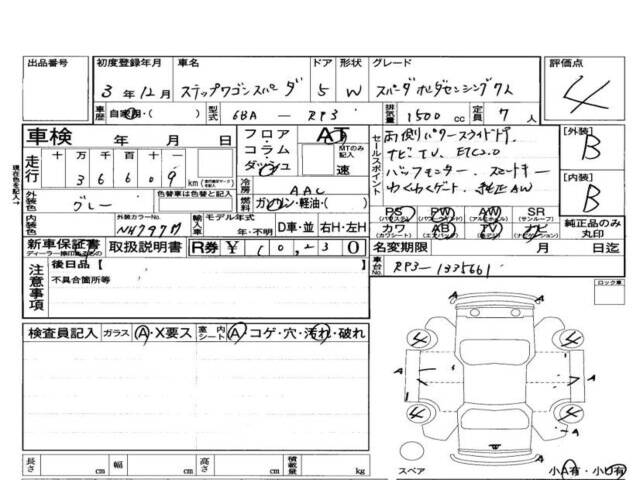 出品番号 初度登録年月 車名 ドア 形状 グレード 評価点
3年12月 ステップワゴンスパーダ 5 W スパーダ ホンダセンシング 7人 4
車歴 自家用・( ) 型式 6BA — RP3 排気量 1500 cc 定員 7 人
車検 年 月 日 フロア・コラム・ダッシュ AT MTのみ記入 速
セールスポイント 両側パワースライドドア
ナビ TV ETC2.0
バックモニター スマートキー
わくわくゲート 純正AW
[外装] B
[内装] B
現在色を記入→
走行 十 万 千 百 十 一
3 6 6 0 9 km
冷房 AAC
外装色 グレー 燃料 ガソリン・軽油・( )
内装色 外装カラーNo. NH797M 輸入車 モデル年式 年・不明 D車・並 右H・左H
PS (パワステ) PW (パワーウィンドウ) AW (アルミホイール) SR (サンルーフ)
カワ (カワシート) AB (エアバッグ) TV (テレビ) ナビ (ナビゲーション) 純正品のみ丸印
新車保証書 取扱説明書 R券 ¥ 名変期限 月 日迄
車台No. RP3-1335661
注意事項 後日品【 】
不具合箇所等
ロック車
検査員記入 ガラス A・X要ス 室内シート A コゲ・穴・汚れ・破れ
A
4 4
A A
4 4
A
A
長さ cm 幅 cm 高さ cm 積載量 kg
スペア 小A有・小U有